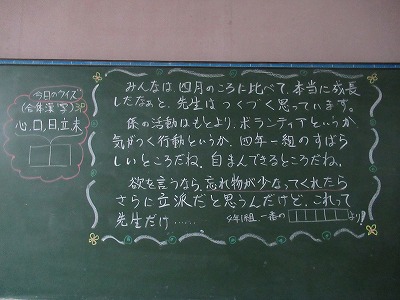 今日のクイズ
(合体漢字)
心、口、日、立、未
みんなは、四月のころに比べて、本当に成長
したなぁと、先生はつくづく思っています。
係の活動はもとより、ボランティアというか
気がつく行動というか、四年一組のすばら
しいところだね。自まんできるところだね。
欲を言うなら、忘れ物が少なってくれたら
さらに立派だと思うんだけど、これって
先生だけ……
4年1組、一番の
より